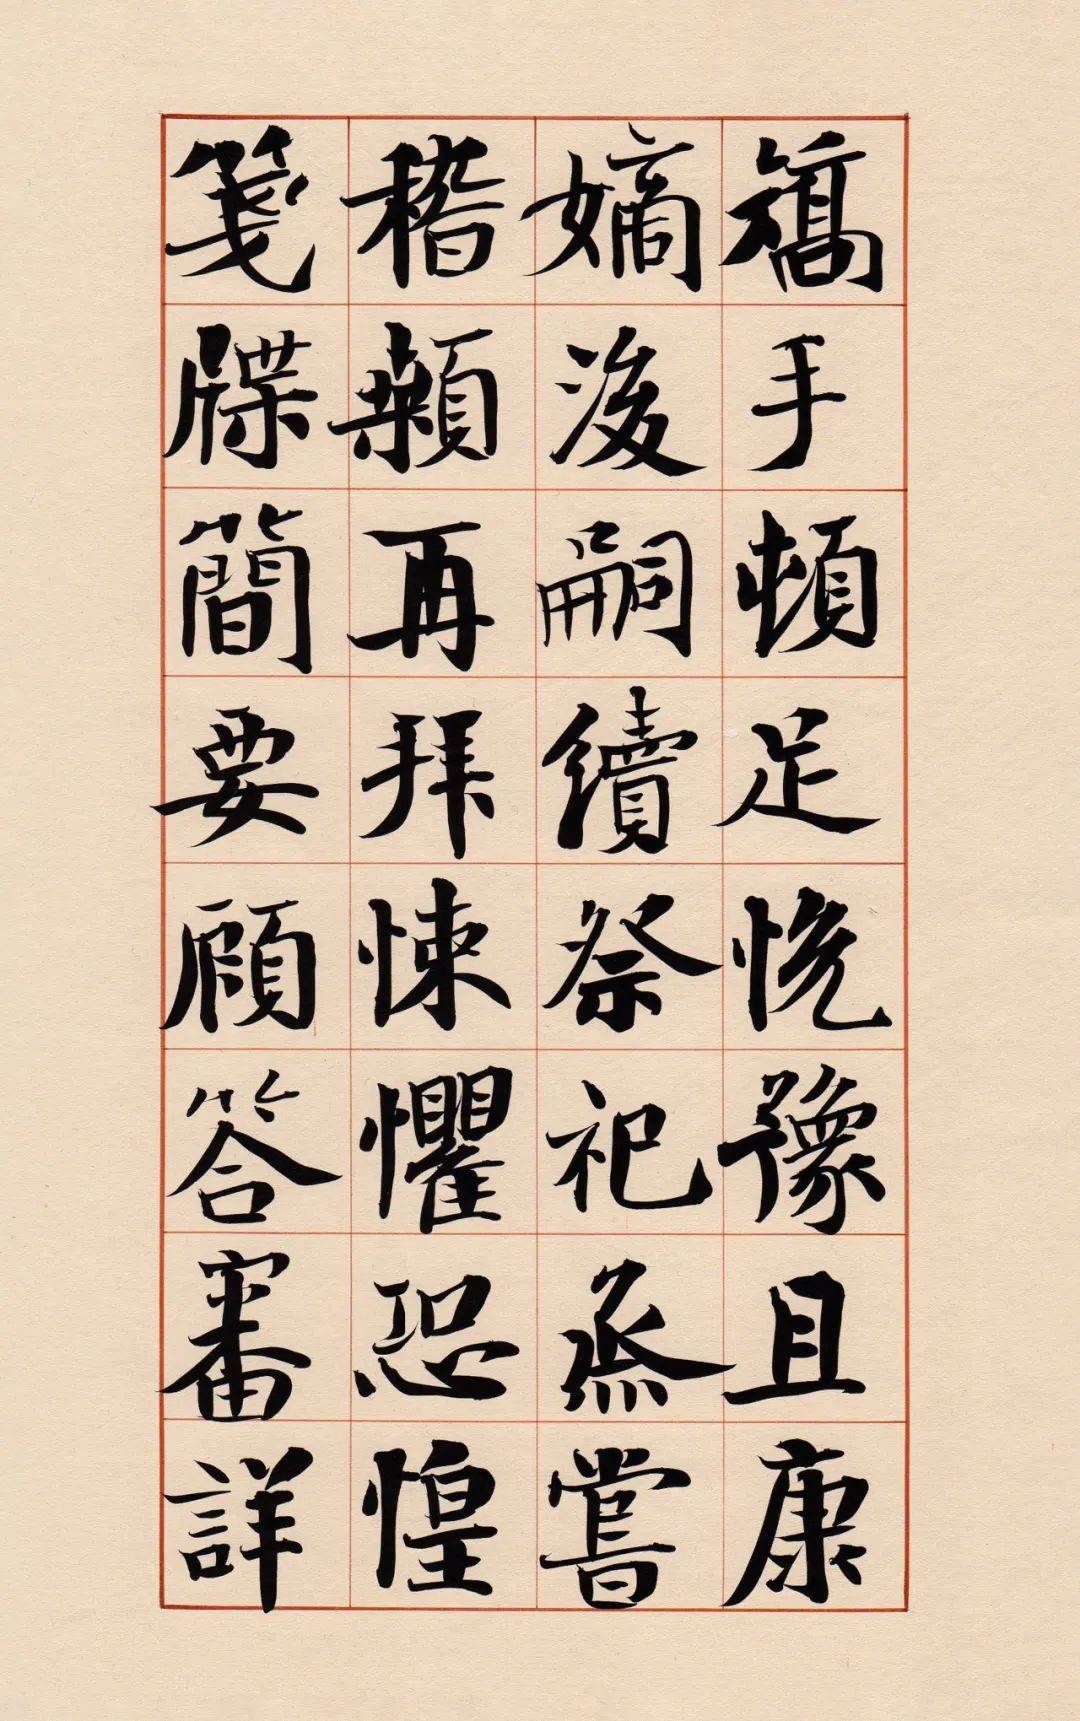 矯手頓足悅豫且康
嫡後嗣續祭祀烝嘗
稽顙再拜悚懼恐惶
箋牒簡要顧答審詳